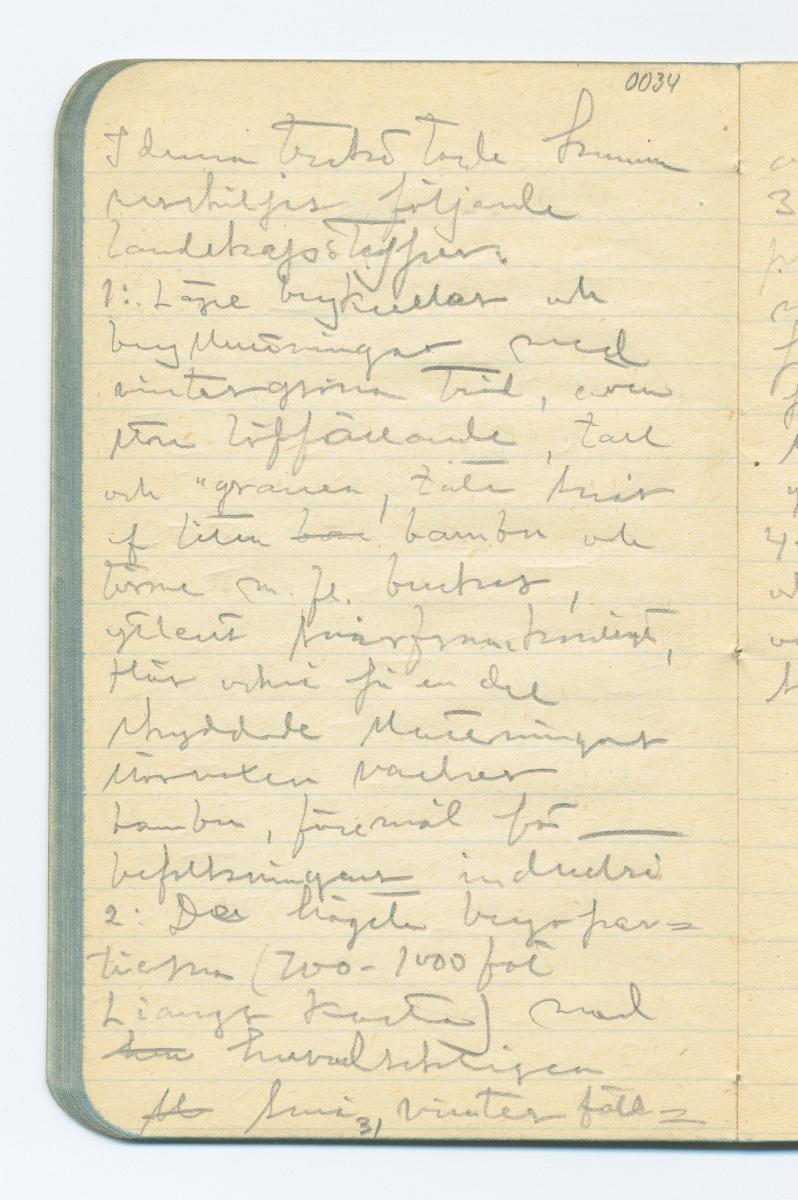 0034
I denna trakt torde kunna
urskiljas följande
landskapstyper:
1: Läge bergkullar och
bergsluttningar med
vintergröna träd, även
stora löffällande, tall
och "granen, täta snår
af liten bambu och
törne m. fl. buskar,
ytterst
Här också på en del
skyddade sluttningar
storvuxen vacker
bambu, föremål för
befolkningens industri
2: De högsta bergspar=
tierna (700-1000 fot
Liangs karta) med
huvudsakligen
små, vinter fäll=
31